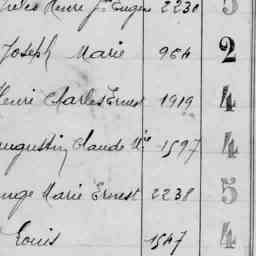 Jules Henri Jh Eugène 2230 5
Joseph Marie 984 2
Henri Charles Ernest 1919 4
Augustin Claude Mie 1597 4
Ange Marie Ernest 2238 5
Louis 1547 4